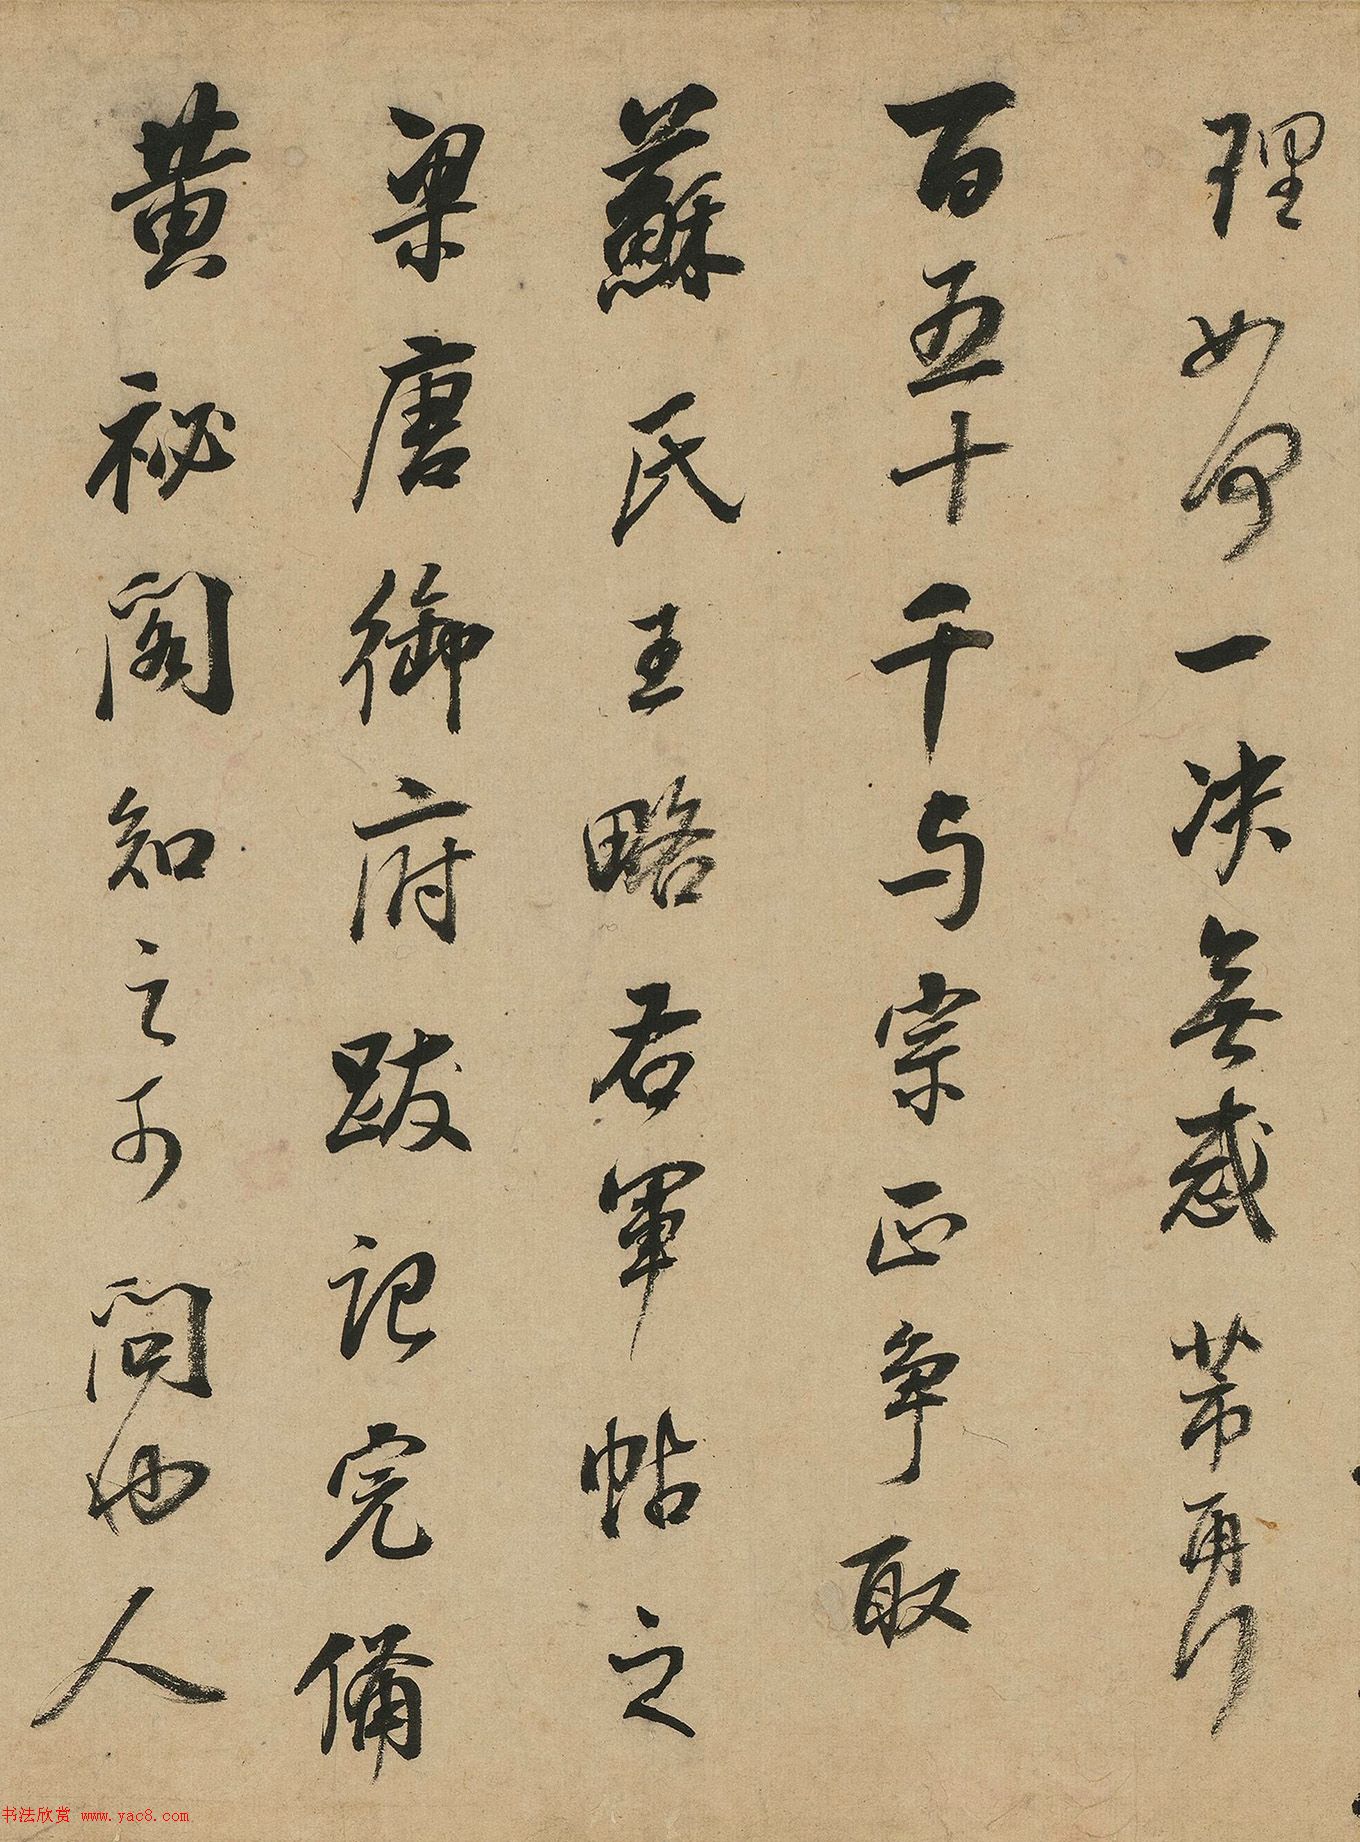 理如何一决無惑芾再行
百五十千与宗正争取
蘇氏王略右軍帖之
梁唐御府跋记完備
黄秘閣知之可問也人
书法欣赏 www.yac8.com